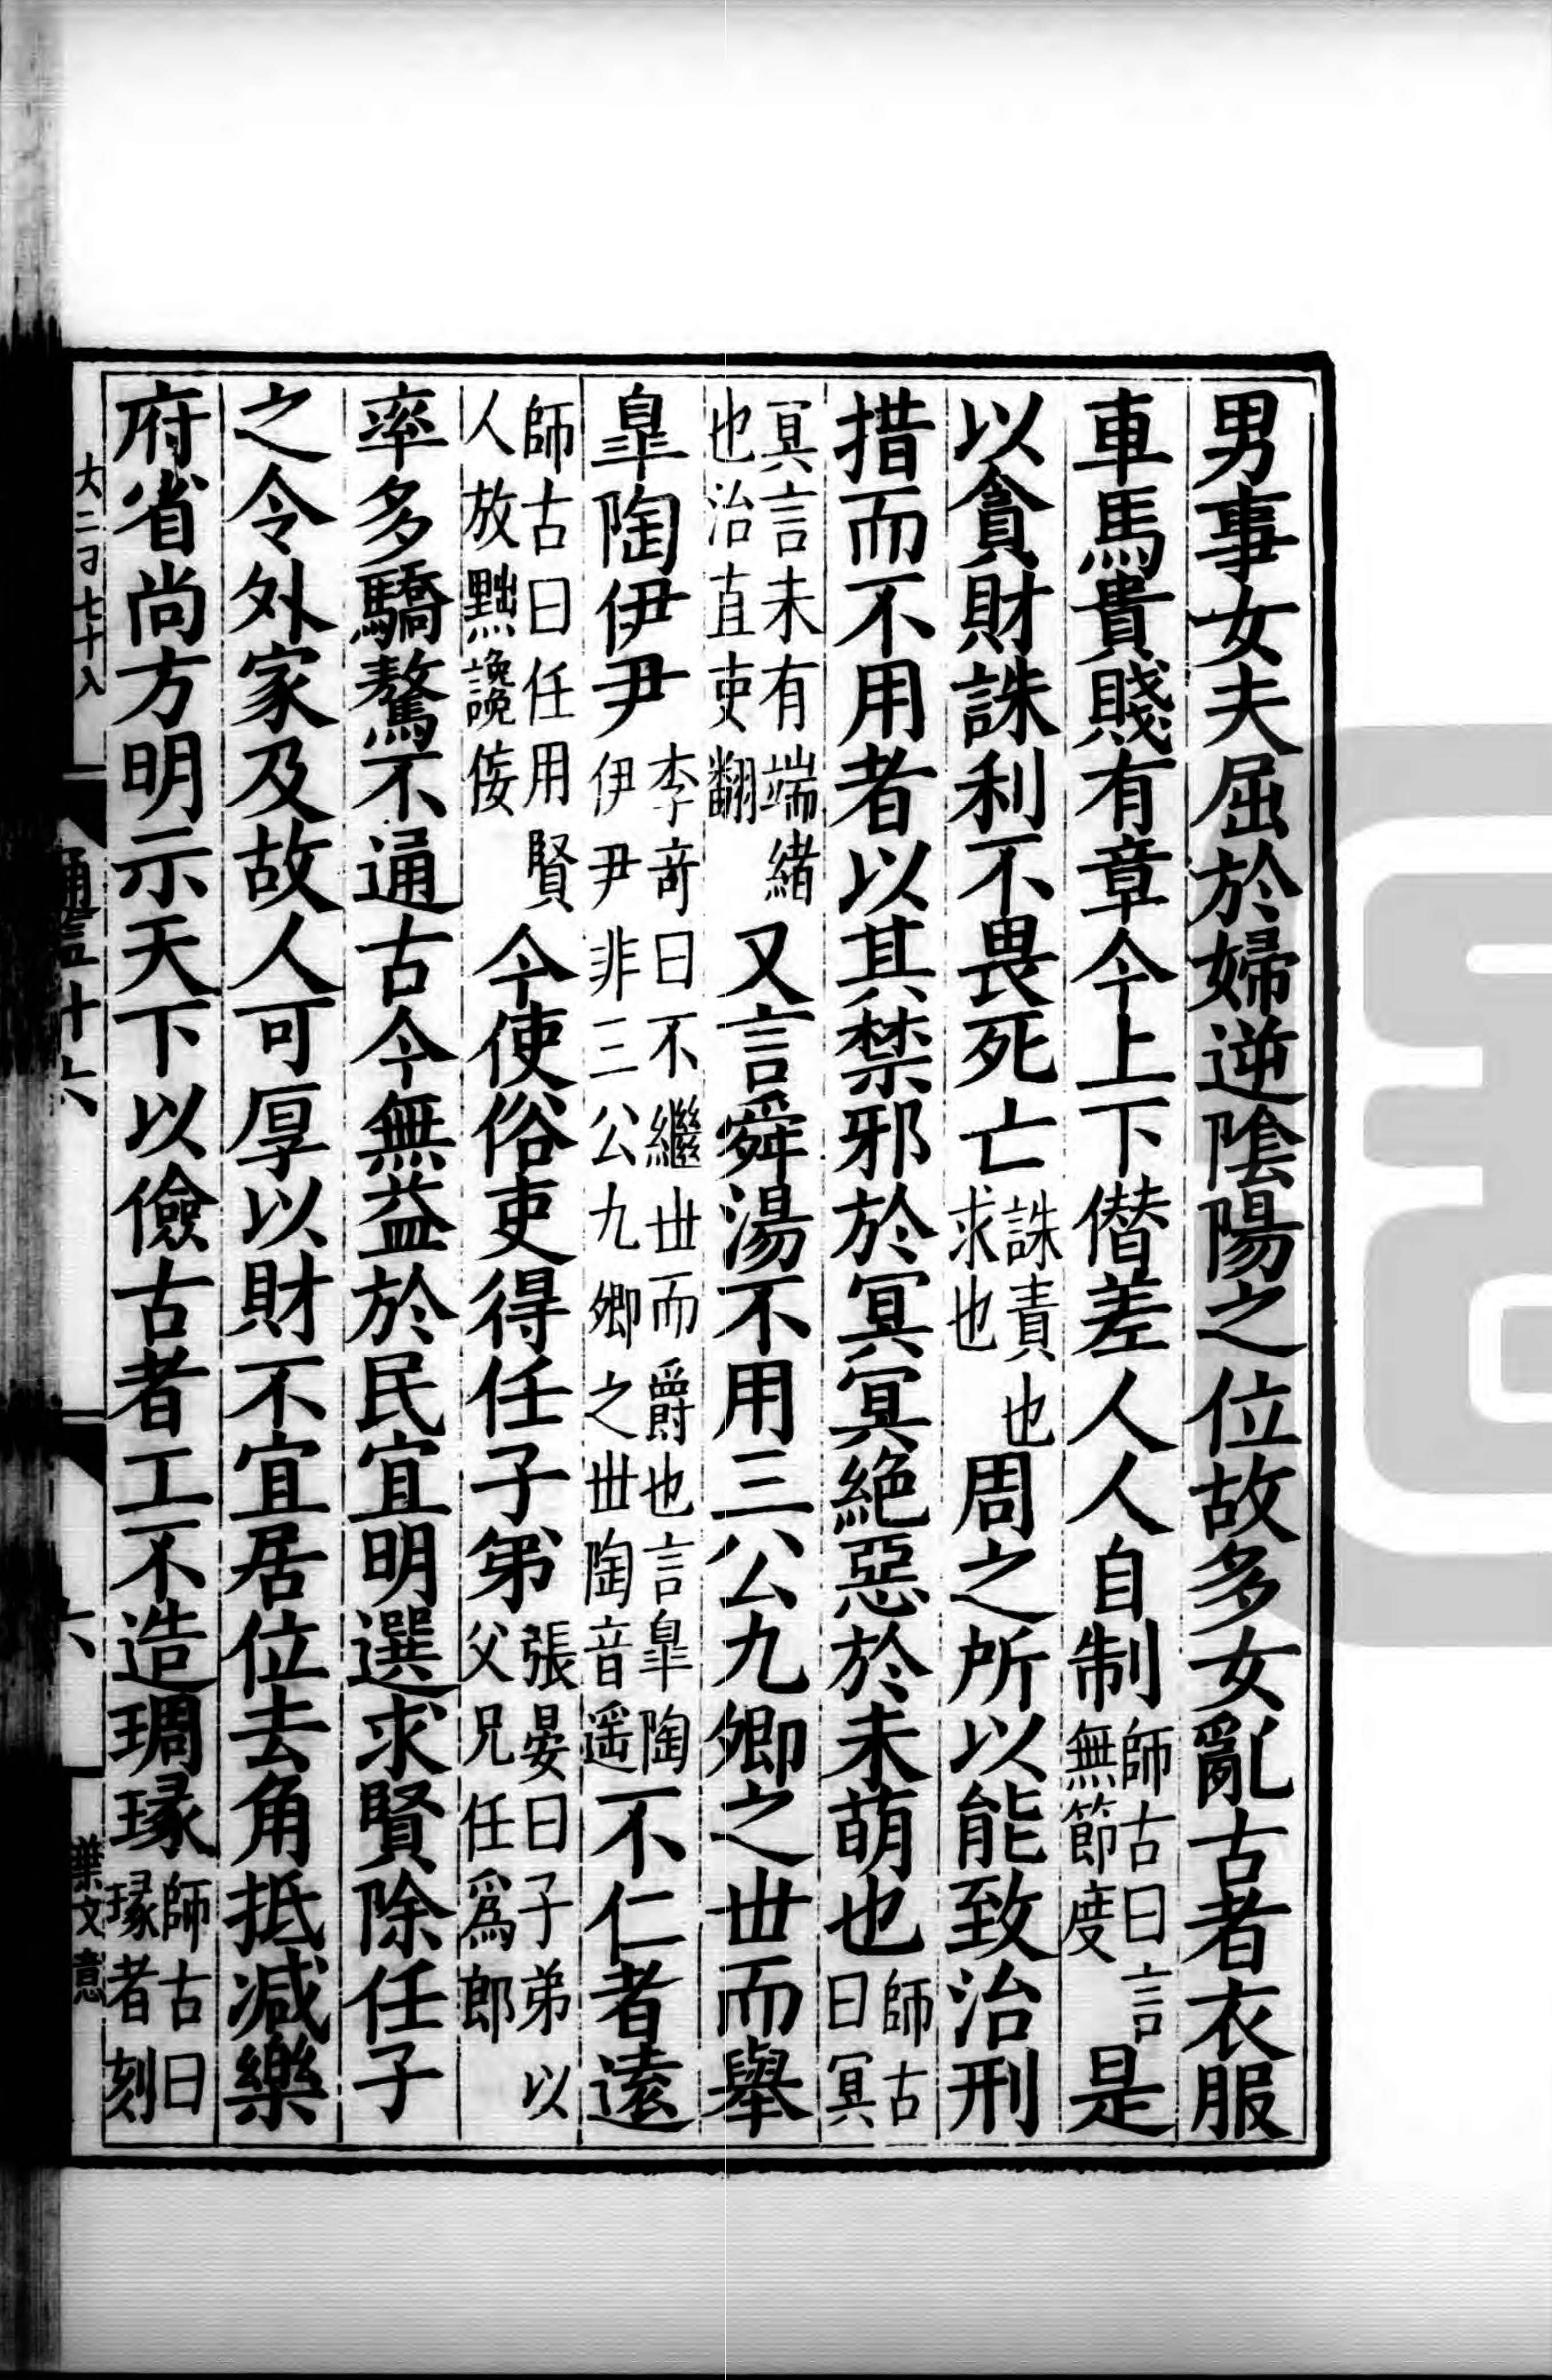 男事女夫屈於婦逆陰陽之位故多女亂古者衣服
車馬貴賤有章今上下僣差人人自制師古曰言無節度是
以貪財誅利不畏死亡誅責也求也周之所以能致治刑
措而不用者以其禁邪於冥冥絶惡於未萌也師古曰冥
冥言未有端緒也治直吏翻又言舜湯不用三公九卿之丗而舉
臯陶伊尹李竒曰不繼丗而爵也言臯陶伊尹非三公九卿之丗陶音遥不仁者遠
師古曰任用賢人放黜讒佞今使俗吏得任子弟張晏曰子弟以父兄任爲郎
率多驕驁不通古今無益於民宜明選求賢除任子
之令外家及故人可厚以財不宜居位去角抵減樂
府省尚方明示天下以儉古者工不造琱瑑師古曰瑑者刻
大二百七十八
通鑑二十六
六
葉文意